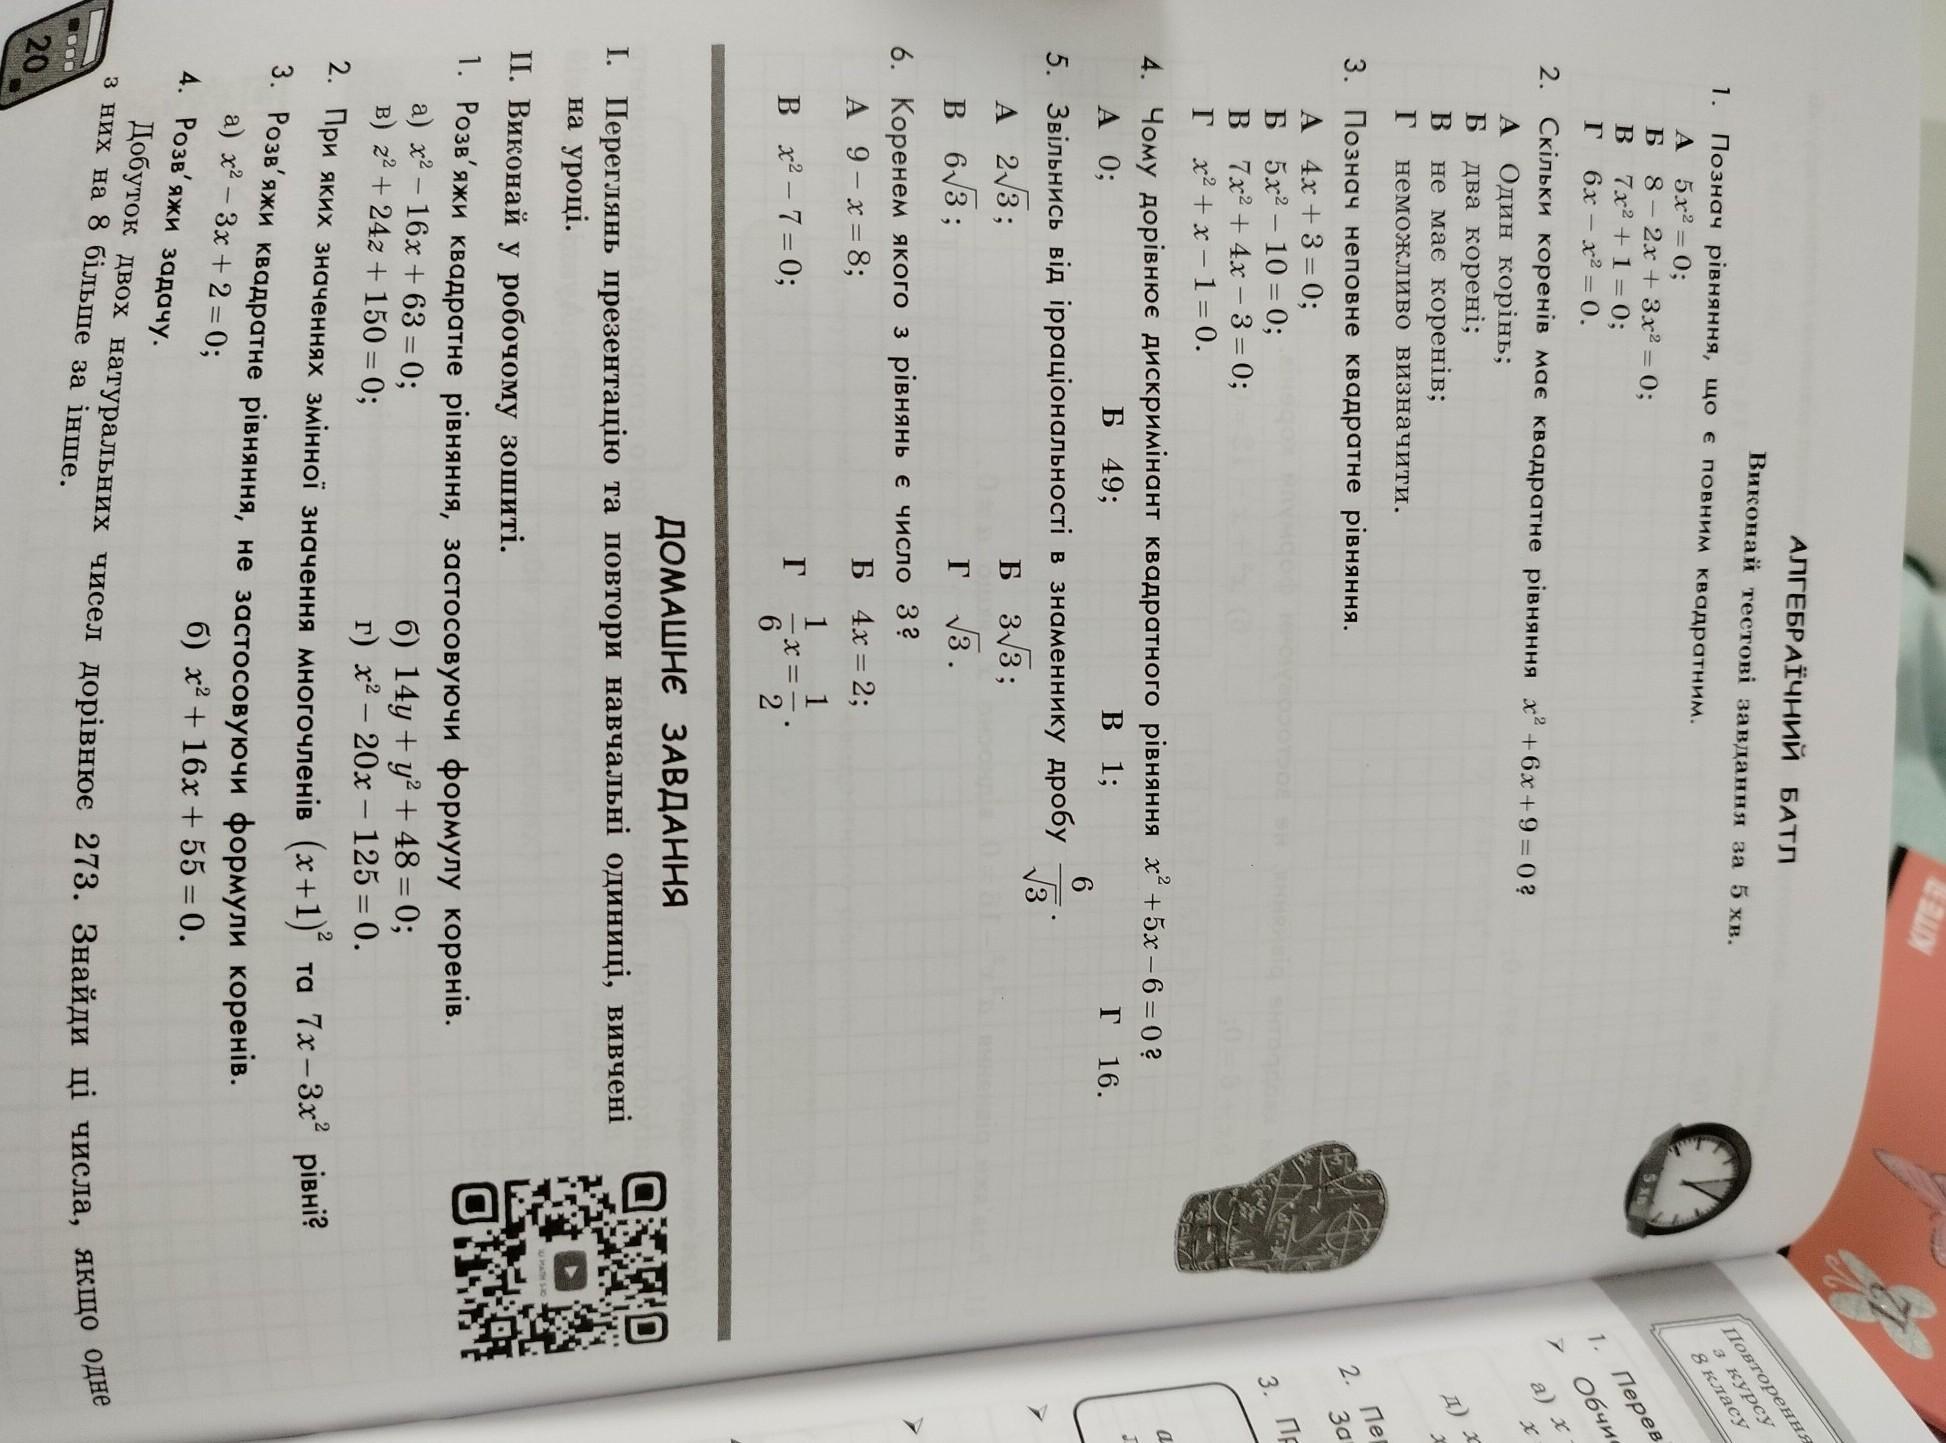 АЛГЕБРАЇЧНИЙ БАТЛ
Виконай тестові завдання за 5 хв.
1. Познач рівняння, що є повним квадратним.
А 5x² = 0;
Б 8 − 2x + 3x² = 0;
В 7x² + 1 = 0;
Г 6x − x² = 0.
2. Скільки коренів має квадратне рівняння x² + 6x + 9 = 0?
А Один корінь;
Б два корені;
В не має коренів;
Г неможливо визначити.
3. Познач неповне квадратне рівняння.
А 4x + 3 = 0;
Б 5x² − 10 = 0;
В 7x² + 4x − 3 = 0;
Г x² + x − 1 = 0.
4. Чому дорівнює дискримінант квадратного рівняння x² + 5x − 6 = 0?
А 0; Б 49; В 1; Г 16.
5. Звільнись від ірраціональності в знаменнику дробу 6/√3.
А 2√3; Б 3√3;
В 6√3; Г √3.
6. Коренем якого з рівнянь є число 3?
А 9 − x = 8; Б 4x = 2;
В x² − 7 = 0; Г 1/6 x = 1/2.
ДОМАШНЄ ЗАВДАННЯ
I. Переглянь презентацію та повтори навчальні одиниці, вивчені
на уроці.
II. Виконай у робочому зошиті.
1. Розв'яжи квадратне рівняння, застосовуючи формулу коренів.
а) x² − 16x + 63 = 0; б) 14y + y² + 48 = 0;
в) z² + 24z + 150 = 0; г) x² − 20x − 125 = 0.
2. При яких значеннях змінної значення многочленів (x+1)² та 7x − 3x² рівні?
3. Розв'яжи квадратне рівняння, не застосовуючи формули коренів.
а) x² − 3x + 2 = 0; б) x² + 16x + 55 = 0.
4. Розв'яжи задачу.
Добуток двох натуральних чисел дорівнює 273. Знайди ці числа, якщо одне
з них на 8 більше за інше.
20
Повторення
з курсу
8 класу
1. Перев
Обчи
а) x
x
д) x
x
2. Пе
За
3. Пр
а
5 хв